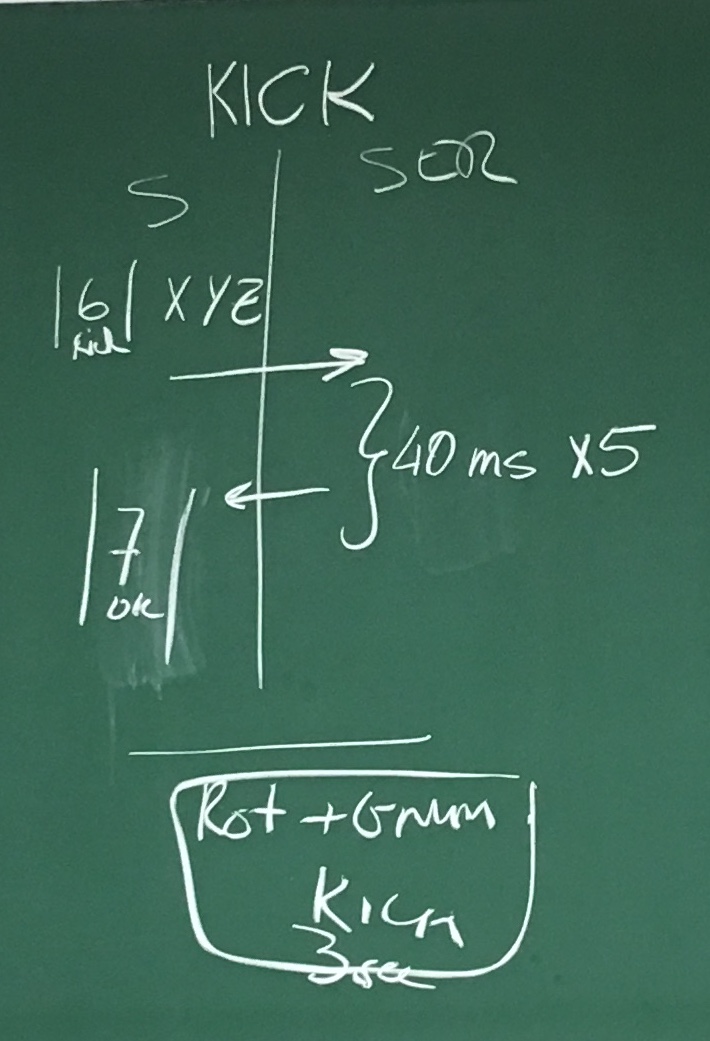 KICK
S SER
|6| XYZ
kick
40 ms x5
|7|
OK
Rot + Grün
Kick
3 sec